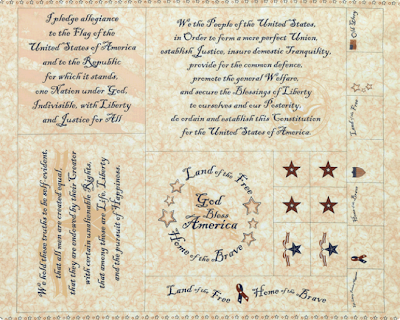 I pledge allegiance
to the Flag of the
United States of America
and to the Republic
for which it stands,
one Nation under God,
Indivisible, with Liberty
and Justice for All
We the People of the United States,
in Order to form a more perfect Union,
establish Justice, insure domestic Tranquility,
provide for the common defence,
promote the general Welfare,
and secure the Blessings of Liberty
to ourselves and our Posterity,
do ordain and establish this Constitution
for the United States of America.
Old Glory
Land of the Free
We hold these truths to be self-evident,
that all men are created equal,
that they are endowed by their Creator
with certain unalienable Rights,
that among these are Life, Liberty
and the pursuit of Happiness.
Land of the Free
God
Bless
America
Home of the Brave
Home of the Brave
Land of the Free
Home of the Brave